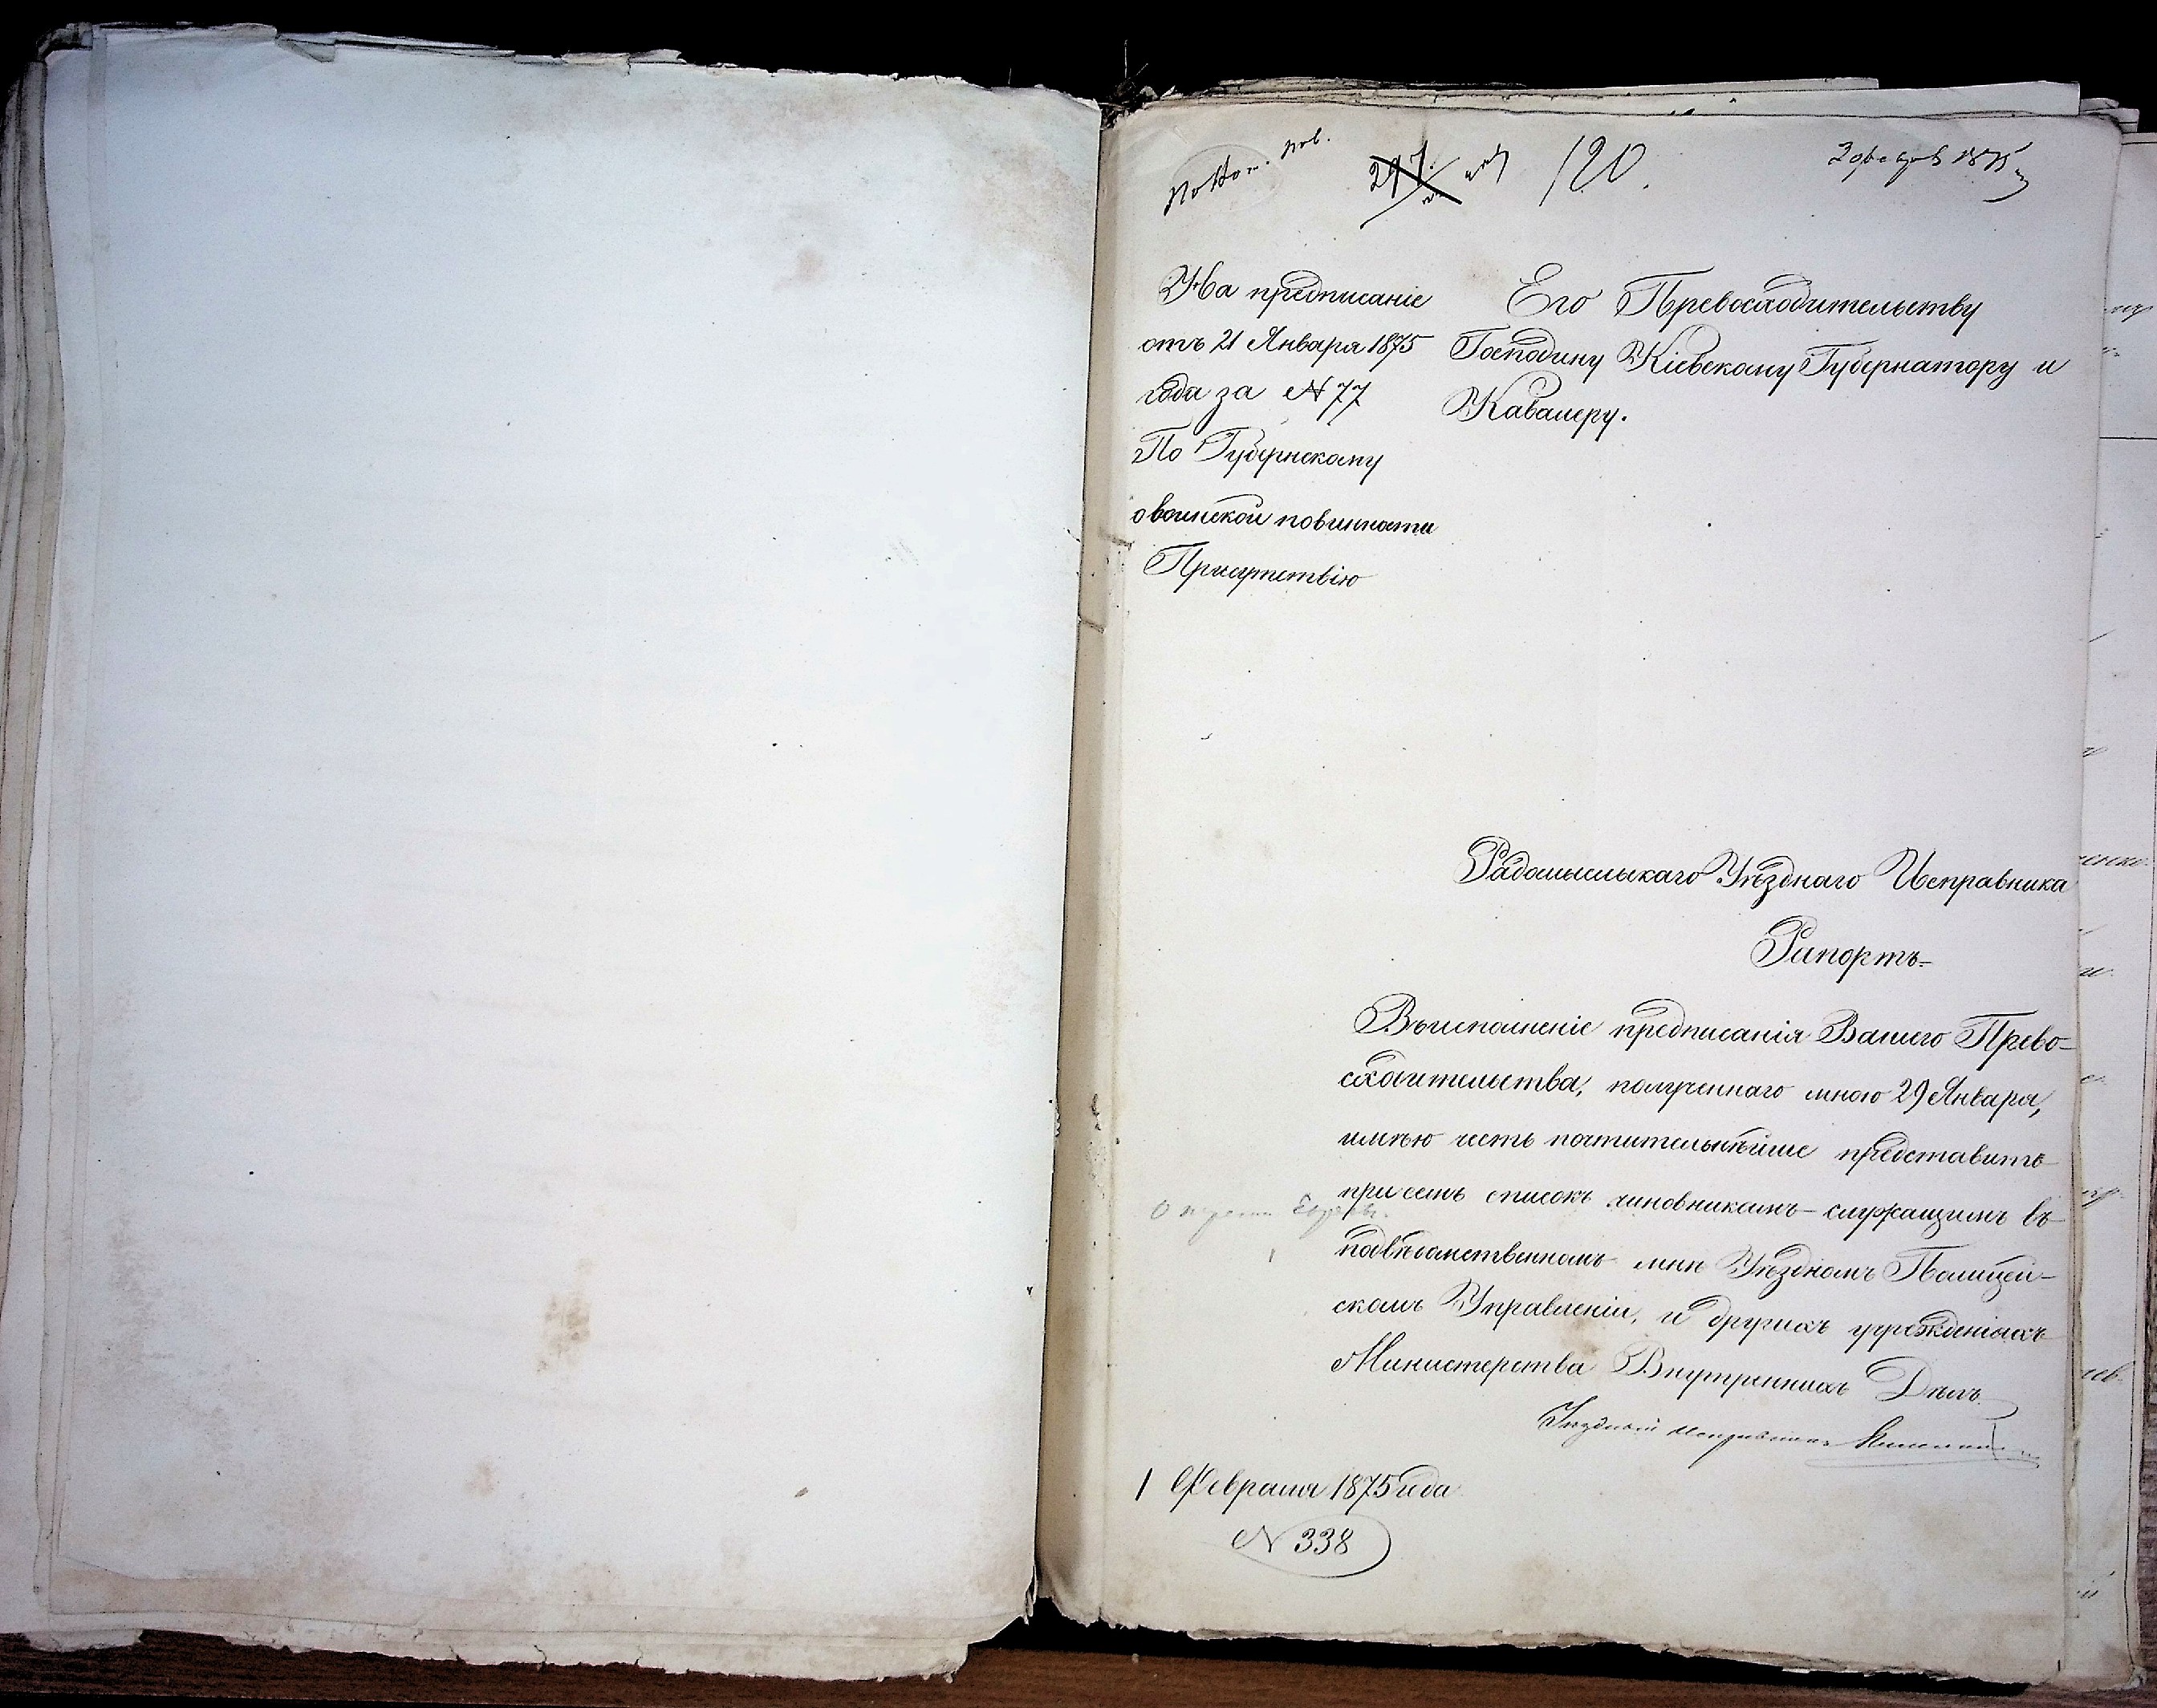 120.
На предписаніе
отъ 21 Января 1875
года за № 77
По Губернскому
о воинской повинности
Присутствію
Его Превосходительству
Господину Кіевскому Губернатору и
Кавалеру.
Радомысльскаго Уѣзднаго Исправника
Рапортъ.
Во исполненіе предписанія Вашего Прево-
сходительства, полученнаго мною 29 Января,
имѣю честь почтительнѣйше представить
при семъ списокъ чиновникамъ служащимъ въ
подвѣдомственномъ мнѣ Уѣздномъ Полицей-
скомъ Управленіи, и другихъ учрежденіяхъ
Министерства Внутреннихъ Дѣлъ.
Уѣздный Исправникъ
1 Февраля 1875 года
№ 338